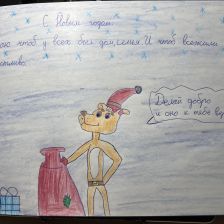 С Новым годом.
чтоб у всех был дом, семья. И чтоб все жили
Делай добро
и оно к тебе